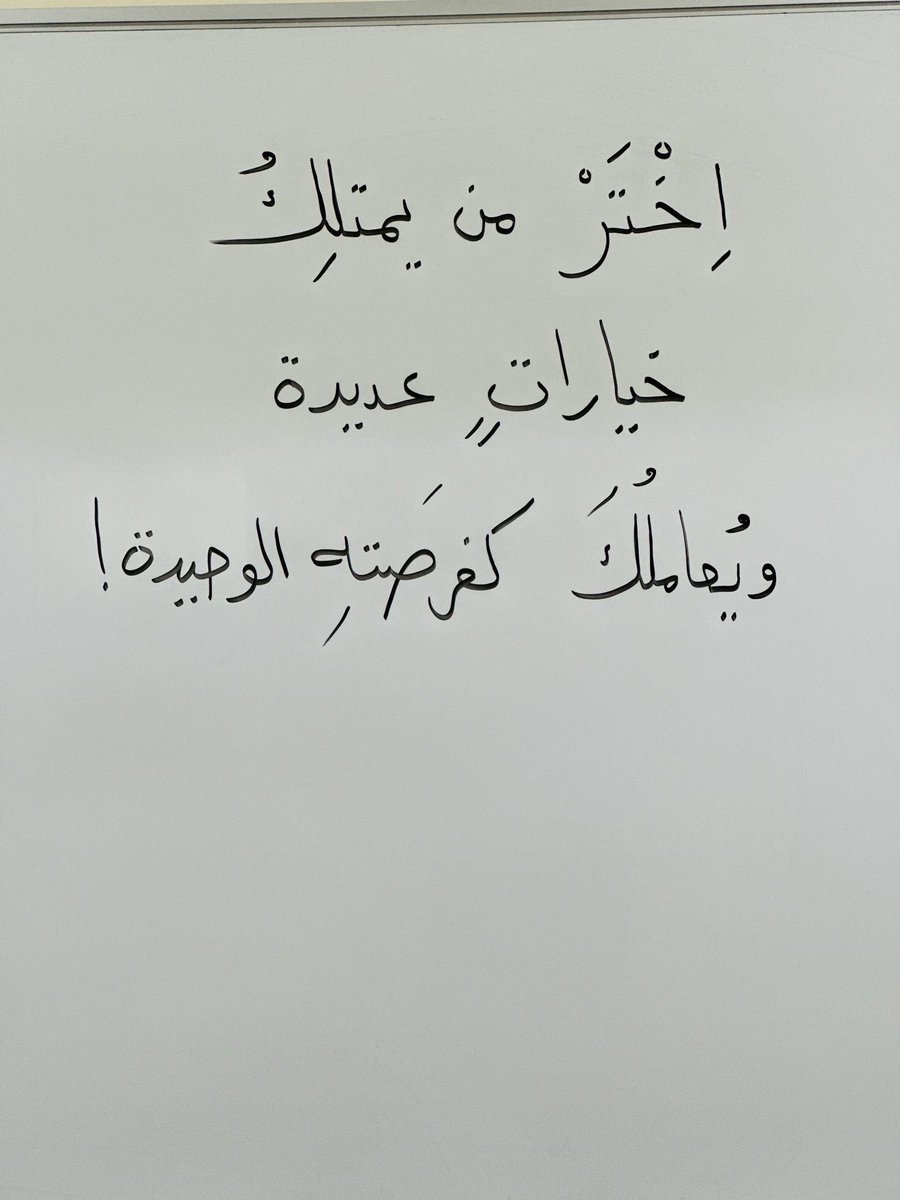 اِخْتَرْ من يمتلِكُ
خياراتٍ عديدة
ويُعاملُكَ كفرصَتهِ الوحيدة!